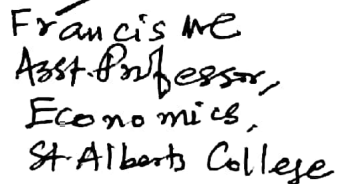 Francis M C
Asst. Professor,
Economics,
St. Alberts College